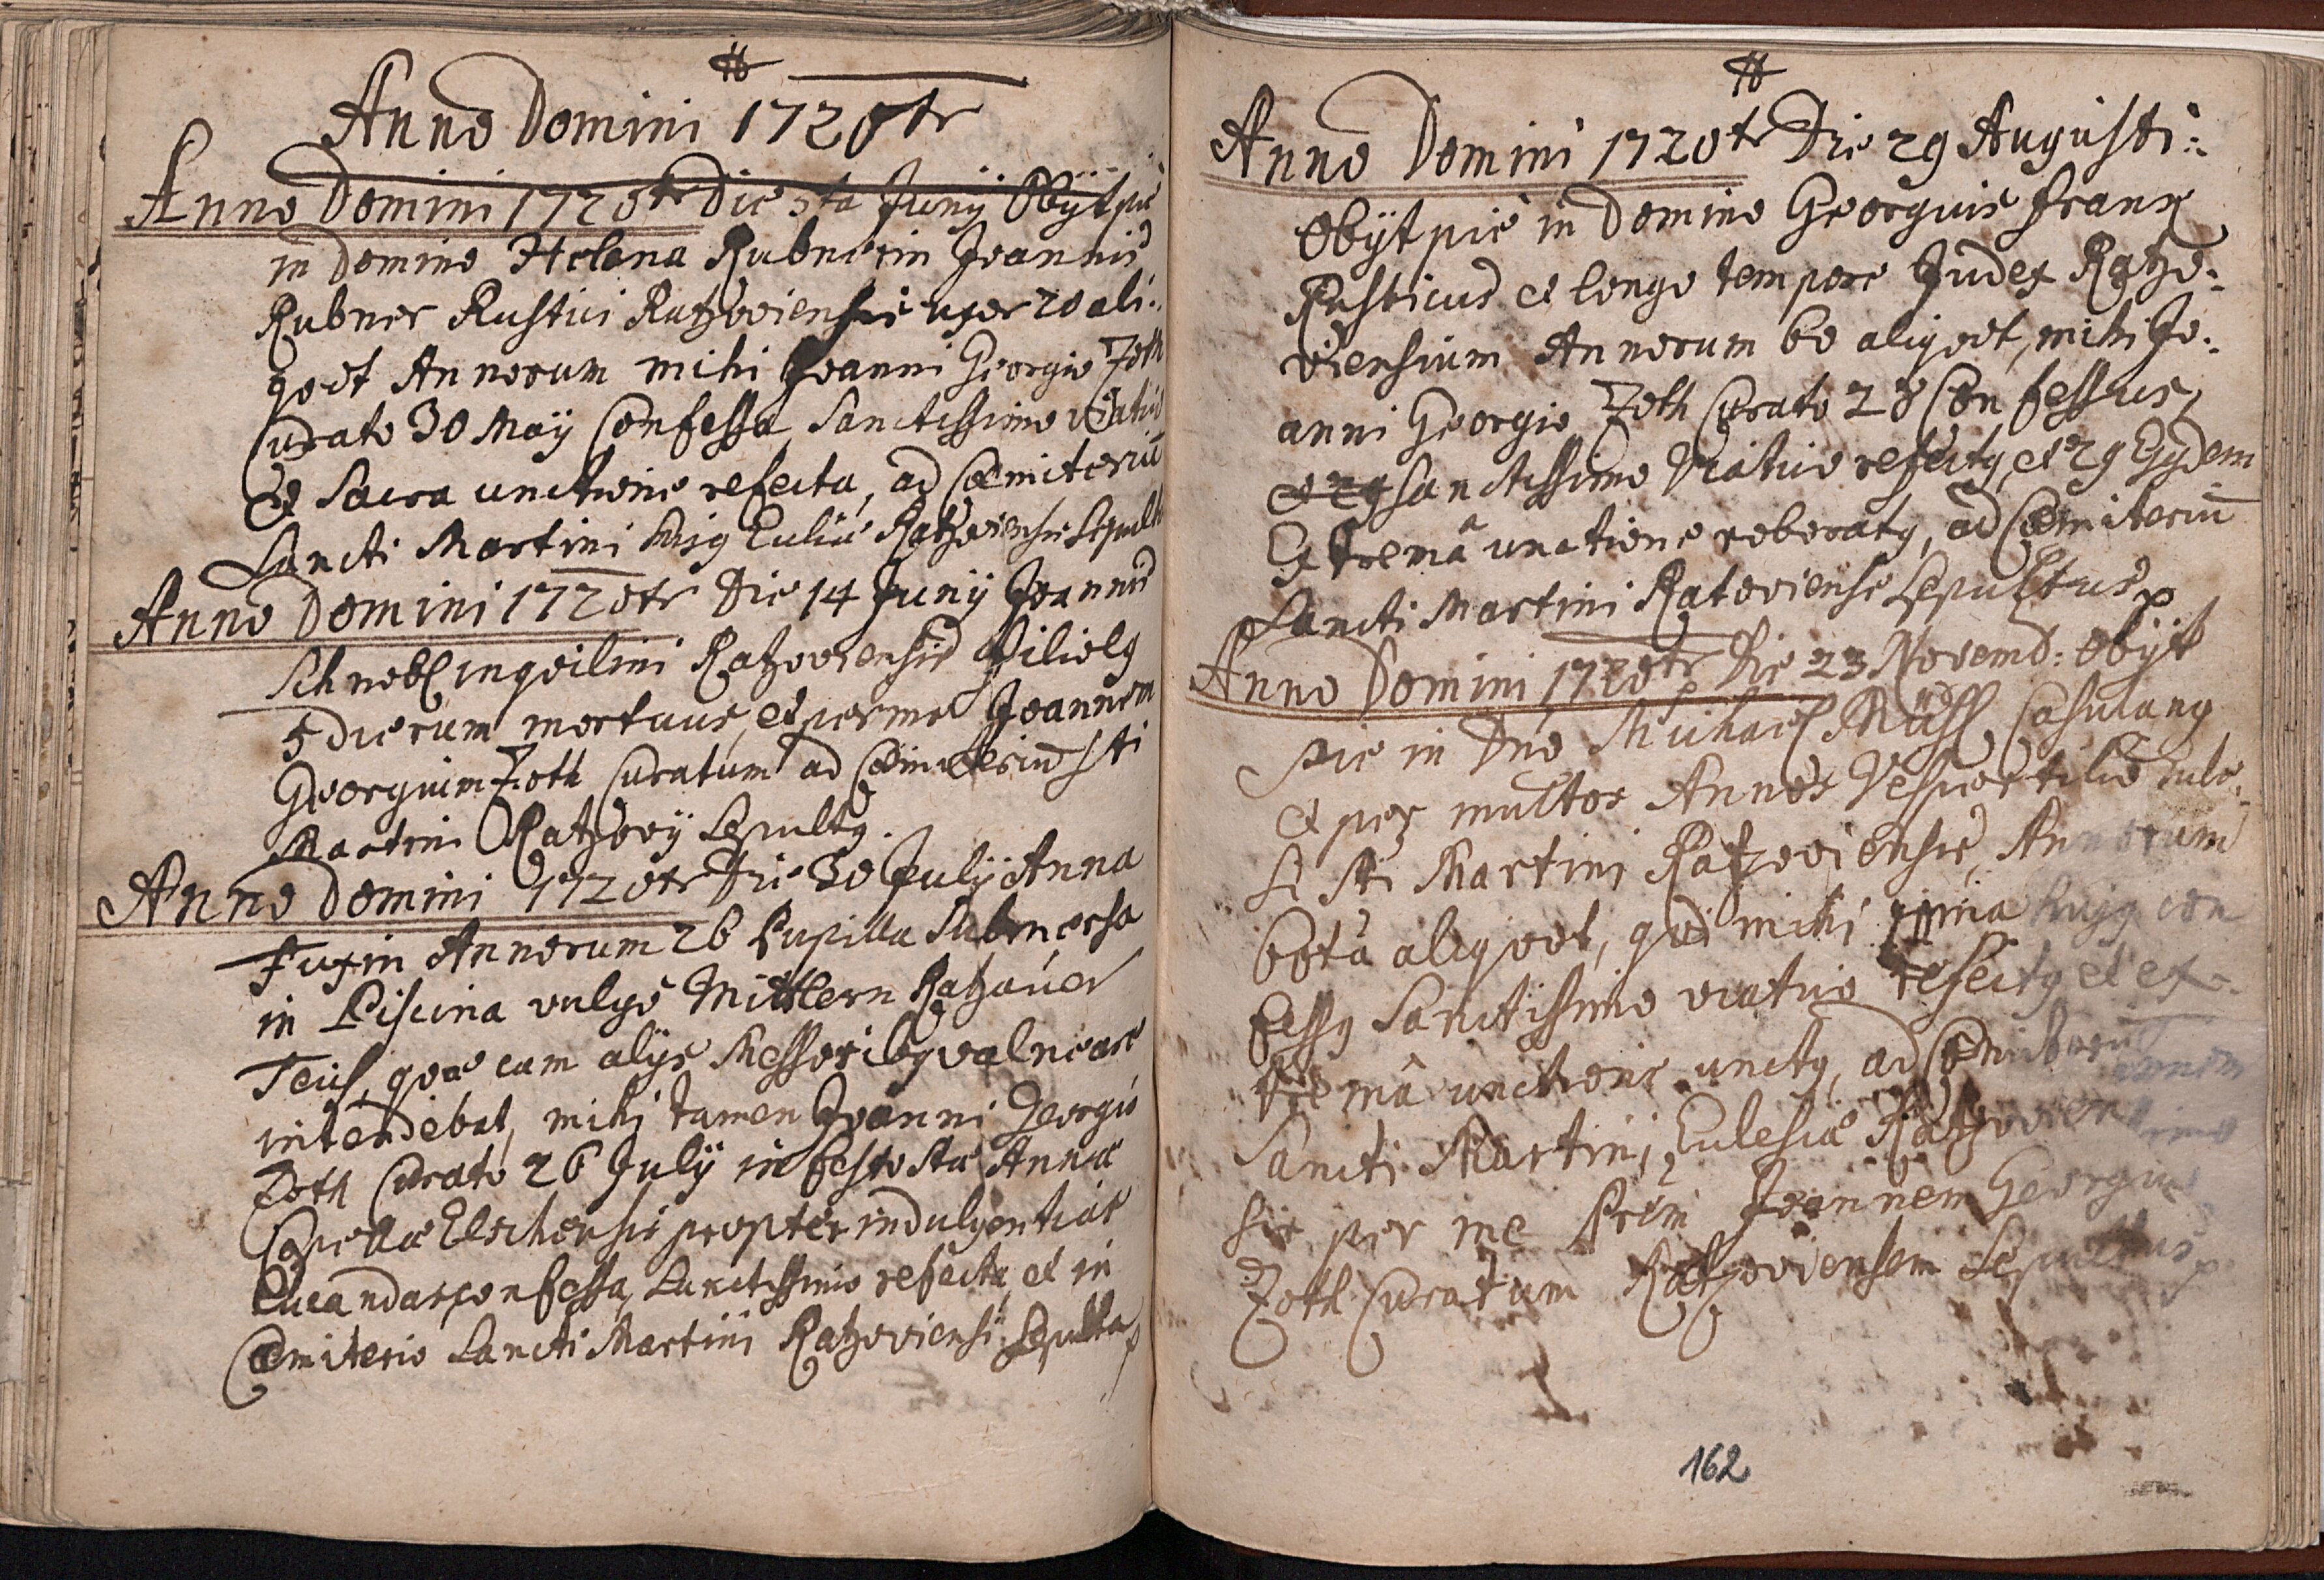 Anno Domini 1720 tr
Anno Domini 1720 tr Die 5ta Junÿ Obÿt piè
in Domino Helena Rubnerin Joannis
Rubner Rustici Ratzoviensis uxor 20 ali:
qvot Annorum mihi Joanni Georgio Zoth
Curato 30 Maÿ Confessa, Sanctissimo viatico
et Sacra unctione refecta, ad Cœmiteriū
Sancti Martini hujq Ecclæ Ratzoviensis Sepulta
Anno Domini 1720 tr Die 14 Junÿ Joannis
Schnebl inqvilini Ratzoviensis Filiolq
5 dierum mortuus, et per me Joannem
Georgium Zoth Curatum ad Cœmiteriū Sti
Martini Ratzovÿ Sepultq.
Anno Domini 1720 tr Die 30 Julÿ Anna
Fuxin Annorum 26 Pupilla Submersa
in Piscina vulgo Mittlern Ratzauer
Teich, qvæ cum alÿs Messoribq balneare
intendebat, mihi tamen Joanni Georgio
Zoth Curato 26 Julÿ in festo Stæ Annæ
Capellæ Elschensis propter indulgentias
lucandas confessa, Sanctissimo refecta, et in
Cœmiterio Sancti Martini Ratzoviensi Sepulta
Anno Domini 1720 tr Die 29 Augusti:
Obÿt piè in Domino Georgius Franz
Rusticus et longo tempore Judex Ratzo:
viensium Annorum 60 aliqvot, mihi Jo:
anni Georgio Zoth Curato 28 Confessus,
et 29 Sanctissimo Viatico refectq, et 29 Eÿdem
Extremâ unctione roboratq, ad Cœmiteriū
Sancti Martini Ratoviense Sepultus
Anno Domini 1720 tr Die 23 Novemb: Obÿt
pie in Dno Michael Casulanq
et per multos Annos Vespertilio Eccle:
Sti Martini Ratzoviensis, Annorum
60ta aliqvot, qvi mihi hujq con
fessq Sanctissimo viatico refectq et ex:
tremâ unctione unctq, ad Cœmiterium
Sancti Martini, Eclesiæ Ratzovien
sis per me Joannem Georgium
Zoth Curatum Ratzoviensem Sepultus
162